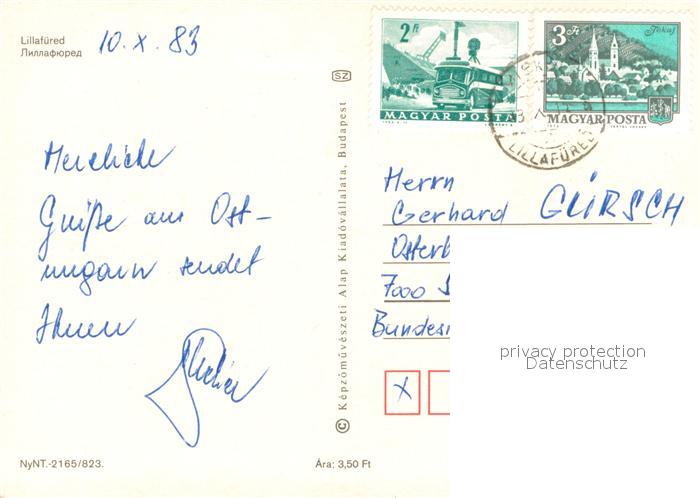 Lillafüred
Лиллафюред
10. x. 83
2 Ft
MAGYAR POSTA
3 Ft Tokaj
MAGYAR POSTA
LILLAFÜRED
SZ
Herzliche
Grüße aus Ost-
ungarn sendet
Ihnen
Herrn
Gerhard GLIRSCH
Osterb
7000 S
Bundes
x
privacy protection
Datenschutz
© Képzőművészeti Alap Kiadóvállalata, Budapest
NyNT.-2165/823.
Ára: 3,50 Ft